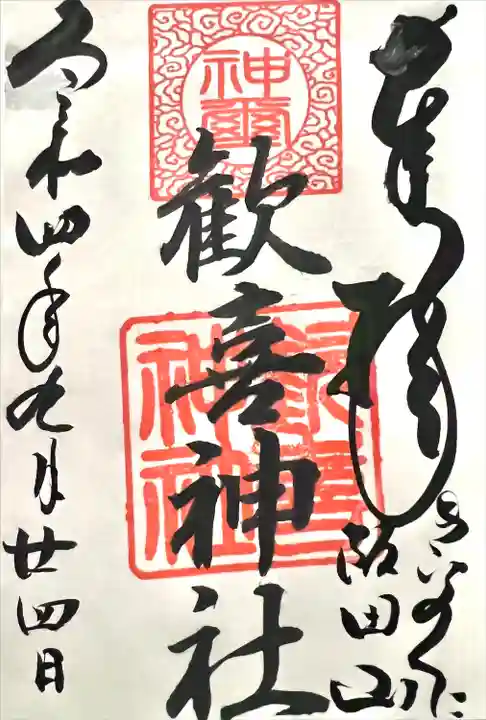 奉拝
阪田山
神璽
歓喜神社
歓喜神社
令和四年九月廿四日